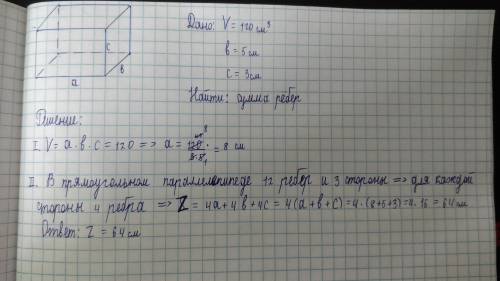 Дано: V = 120 см³
в = 5 см
c = 3 см
Найти: сумма рёбер
a
в
c
Решение:
I. V = a · в · c = 120 => a = 120/3·5 = 8 см
II. В прямоугольном параллелепипеде 12 ребер и 3 стороны => для каждой
стороны 4 ребра => Z = 4a + 4в + 4c = 4(a + в + c) = 4 · (8+5+3) = 4 · 16 = 64 см
Ответ: Z = 64 см